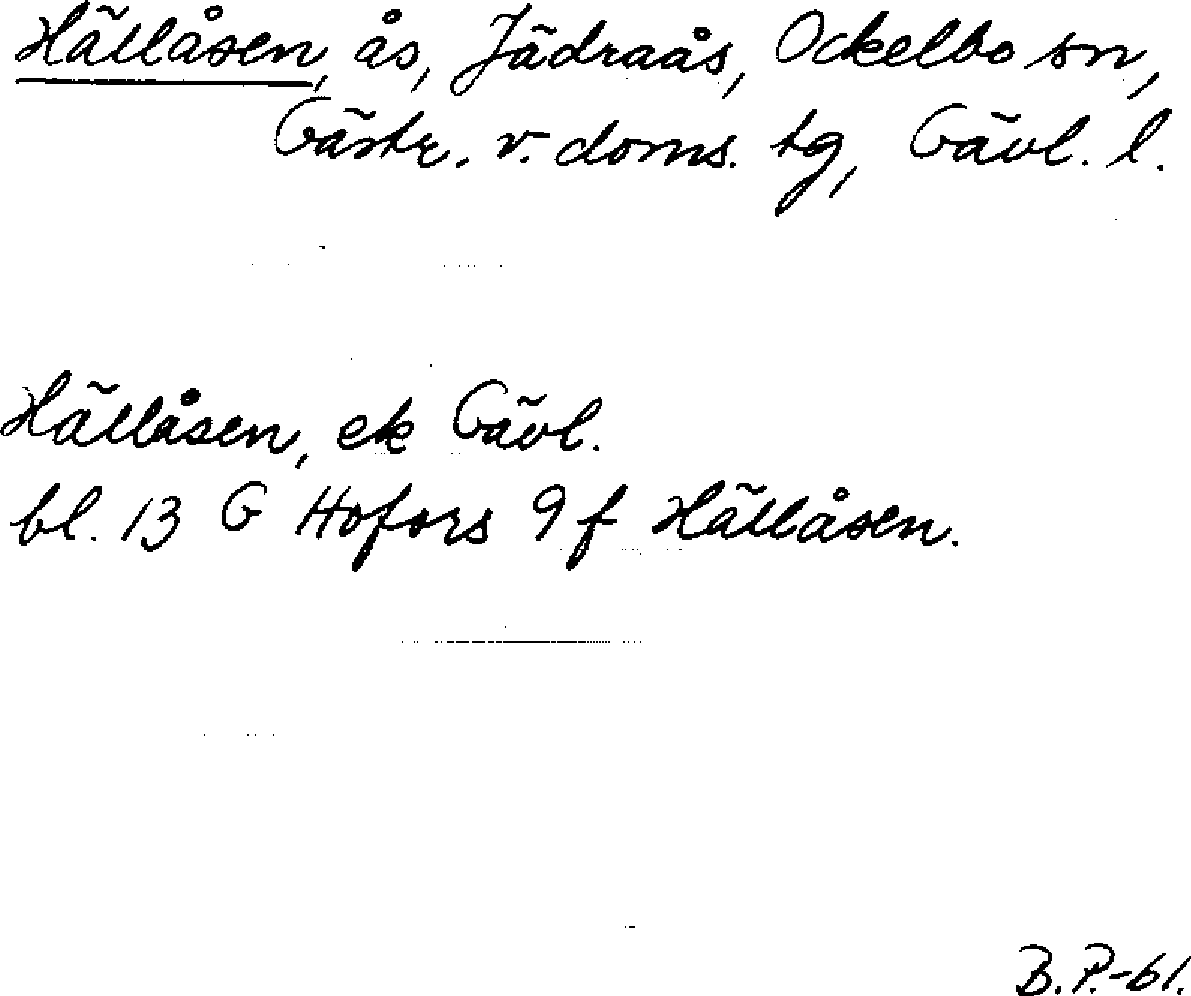 Hällåsen, ås, Jädraås, Ockelbo sn,
Gästr. v. doms. tg, Gävl. l.
Hällåsen, ek Gävl.
bl. 13 G Hofors 9 f Hällåsen.
B.P.-61.